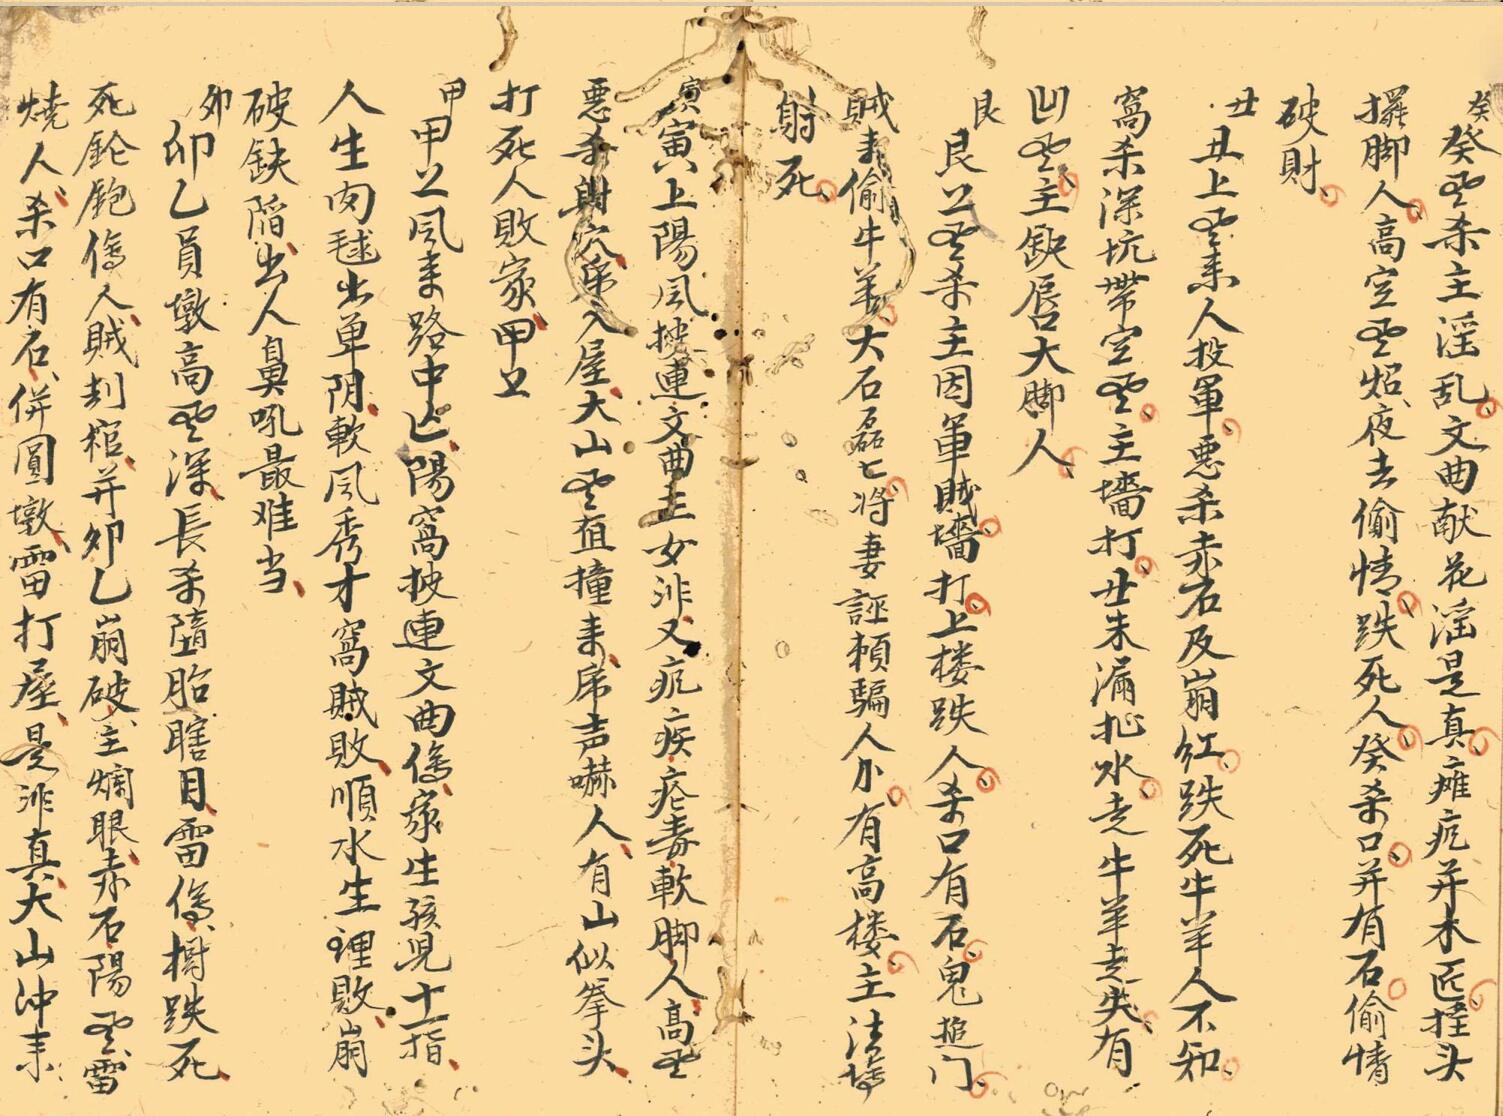 癸
癸㐬杀主淫乱文曲献花淫是真瘫疤并木匠挂头
擺脚人高空㐬焰夜去偷情跌死人癸杀口并有石偷情
破財
丑
丑上㐬来人投軍悪杀赤石及崩紅跌死牛羊人不知
窩杀深坑帯空㐬主墻打丑朱漏水走牛羊走失有
凹㐬主缺唇大脚人
艮
艮上㐬杀主因軍賊墻打上楼跌人杀口有石鬼追门
賊来偷牛羊大石磊七将妻誣頼騙人財有高楼主法塲
射死
寅
寅上陽风披連文曲主女淫又疤疾瘡毒軟脚人高㐬
悪杀射穴入屋大山㐬直撞来声嚇人有山似拳头
打死人敗家甲上
甲
甲上风来路中亡陽窩披連文曲傷家生孩児十一指
人生肉毬出单阴軟风秀才窩賊敗順水生理敗崩
破缺陷出人鼻吼最难当
卯
卯乙員墩高㐬深長杀墮胎瞎目雷傷樹跌死
死銃鉋傷人賊刦棺并卯乙崩破主爛眼赤石陽㐬雷
燒人杀口有石併圓墩雷打屋是非真大山沖来